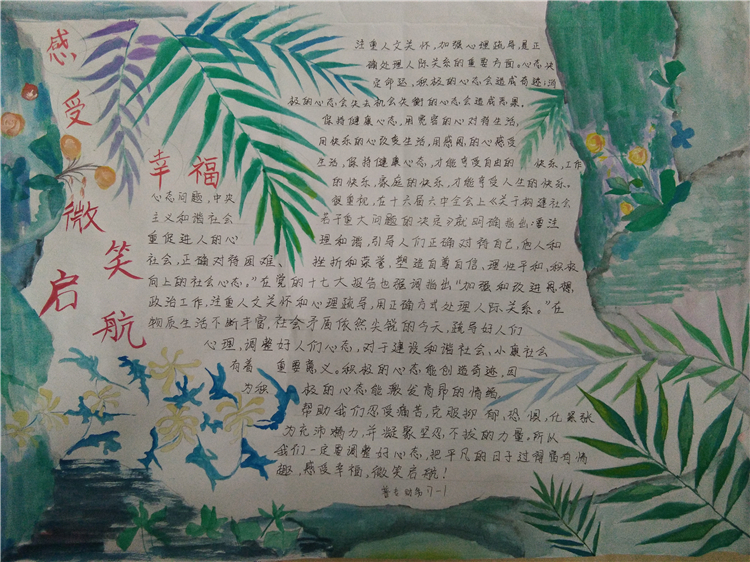 感受幸福
微笑启航
注重人文关怀,加强心理疏导是正
确处理人际关系的重要方面。心态决
定命运,积极的心态会造成奇迹;消
极的心态会失去机会失衡的心态会造成恶果。
保持健康心态,用宽容的心对待生活,
用快乐的心改变生活,用感恩的心感受
生活,保持健康心态,才能享受自由的 快乐,工作
的快乐,家庭的快乐,才能享受人生的快乐。
心态问题,中央 很重视,在十六届六中全会上《关于构建社会
主义和谐社会 若干重大问题的决定》就明确指出:要注
重促进人的心 理和谐,引导人们正确对待自己,他人和
社会,正确对待困难、 挫折和荣誉,塑造自尊自信、理性平和、积极
向上的社会心态。"在党的十七大报告也强调指出"加强和改进思想
政治工作,注重人文关怀和心理疏导,用正确方式处理人际关系。"在
物质生活不断丰富,社会矛盾依然尖锐的今天,疏导好人们
心理,调整好人们心态,对于建设和谐社会、小康社会
有着 重要意义。积极的心态能创造奇迹,因
为积 极的心态能激发高昂的情绪,
帮助我们忍受痛苦,克服抑 郁,恐惧,化紧张
为充沛精力,并凝聚坚忍不拔的力量。所以
我们一定要调整好心态,把平凡的日子过得富有情
趣,感受幸福,微笑启航!